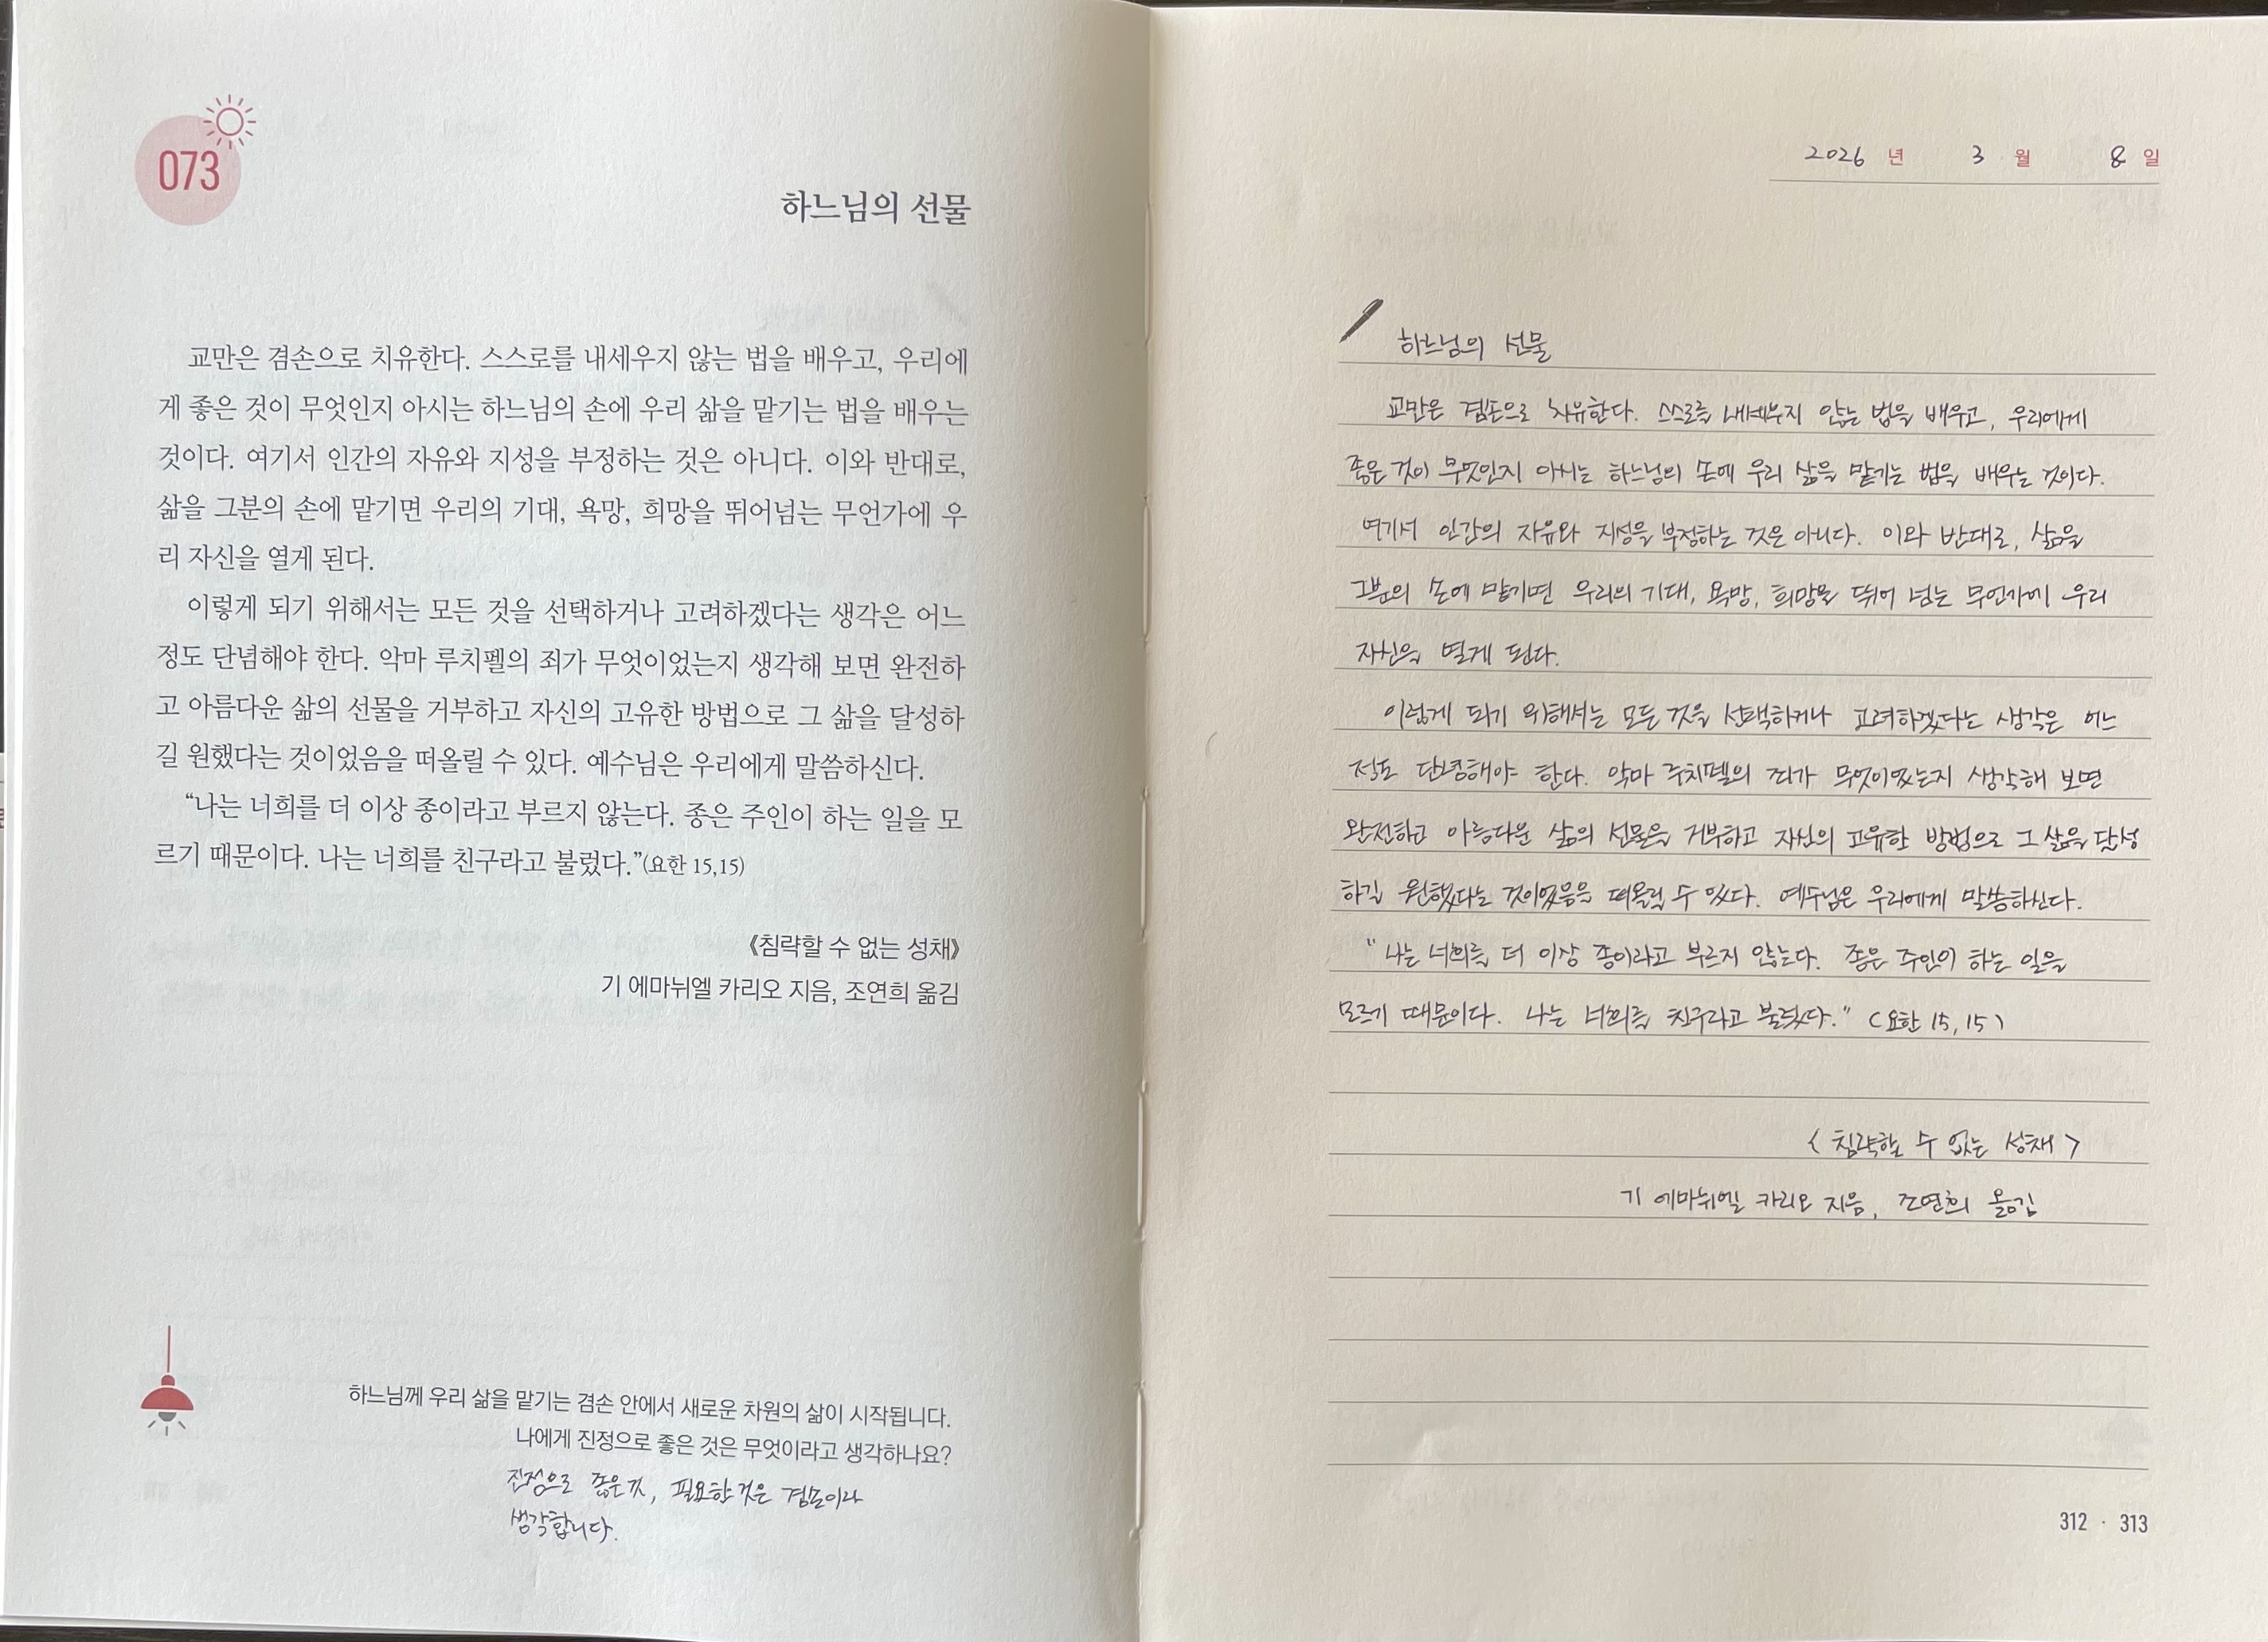 073
하느님의 선물
교만은 겸손으로 치유한다. 스스로를 내세우지 않는 법을 배우고, 우리에
게 좋은 것이 무엇인지 아시는 하느님의 손에 우리 삶을 맡기는 법을 배우는
것이다. 여기서 인간의 자유와 지성을 부정하는 것은 아니다. 이와 반대로,
삶을 그분의 손에 맡기면 우리의 기대, 욕망, 희망을 뛰어넘는 무언가에 우
리 자신을 열게 된다.
이렇게 되기 위해서는 모든 것을 선택하거나 고려하겠다는 생각은 어느
정도 단념해야 한다. 악마 루치펠의 죄가 무엇이었는지 생각해 보면 완전하
고 아름다운 삶의 선물을 거부하고 자신의 고유한 방법으로 그 삶을 달성하
길 원했다는 것이었음을 떠올릴 수 있다. 예수님은 우리에게 말씀하신다.
“나는 너희를 더 이상 종이라고 부르지 않는다. 종은 주인이 하는 일을 모
르기 때문이다. 나는 너희를 친구라고 불렀다.”(요한 15,15)
《침략할 수 없는 성채》
기 에마뉘엘 카리오 지음, 조연희 옮김
하느님께 우리 삶을 맡기는 겸손 안에서 새로운 차원의 삶이 시작됩니다.
나에게 진정으로 좋은 것은 무엇이라고 생각하나요?
진정으로 좋은것, 필요한것은 겸손이라
생각합니다.
2026 년 3 월 8 일
하느님의 선물
교만은 겸손으로 치유한다. 스스로를 내세우지 않는 법을 배우고, 우리에게
좋은 것이 무엇인지 아시는 하느님의 손에 우리 삶을 맡기는 법을 배우는 것이다.
여기서 인간의 자유와 지성을 부정하는 것은 아니다. 이와 반대로, 삶을
그분의 손에 맡기면 우리의 기대, 욕망, 희망을 뛰어 넘는 무언가에 우리
자신을 열게 된다.
이렇게 되기 위해서는 모든 것을 선택하거나 고려하겠다는 생각은 어느
정도 단념해야 한다. 악마 루치펠의 죄가 무엇이었는지 생각해 보면
완전하고 아름다운 삶의 선물을 거부하고 자신의 고유한 방법으로 그 삶을 달성
하길 원했다는 것이었음을 떠올릴 수 있다. 예수님은 우리에게 말씀하신다.
"나는 너희를 더 이상 종이라고 부르지 않는다. 종은 주인이 하는 일을
모르기 때문이다. 나는 너희를 친구라고 불렀다." (요한 15,15)
<침략할 수 없는 성채>
기 에마뉘엘 카리오 지음, 조연희 옮김
312 · 313